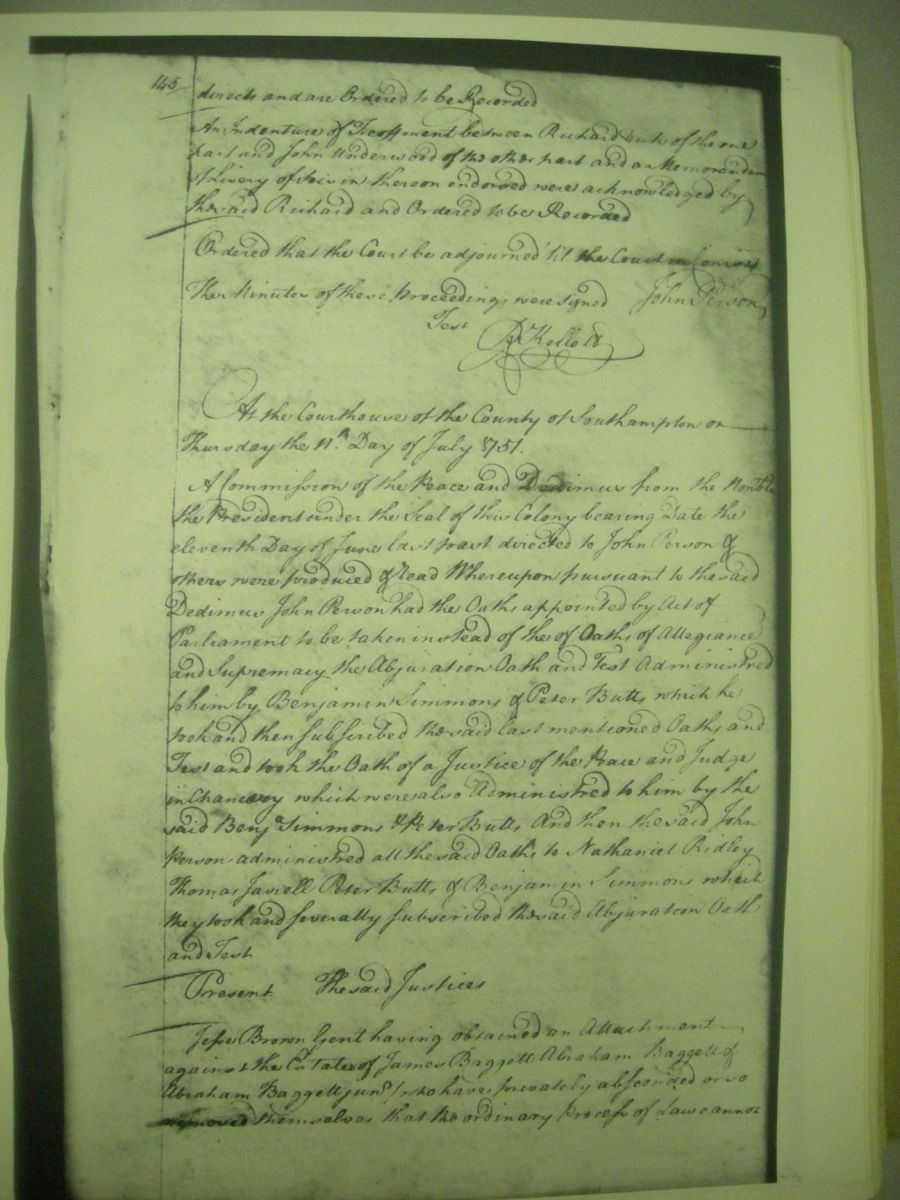 145
directs and are Ordered to be Recorded
An Indenture of Feoffment between Richard of the one
part and John Underwood of the other part and a Memorandum
of Livery of Seisin thereon endorsed were acknowledged by
the said Richard and Ordered to be Recorded
Ordered that the Court be adjourned 'til the Court in Course
The Minutes of these Proceedings were signed John Person
Test
Kello Cl
At the Courthouse of the County of Southampton on
Thursday the 11th Day of July 1751.
A Commission of the Peace and Dedimus from the Honble
the President under the Seal of this Colony bearing Date the
eleventh Day of June last past directed to John Person &
others were produced & read Whereupon pursuant to the said
Dedimus John Person had the Oaths appointed by Act of
Parliament to be taken instead of the of Oaths of Allegiance
and Supremacy the Abjuration Oath and Test Administred
to him by Benjamin Simmons & Peter Butts which he
took and then subscribed the said last mentioned Oaths and
Test and took the Oath of a Justice of the Peace and Judge
in Chancery which were also Administred to him by the
said Benja Simmons & Peter Butts And then the said John
Person administred all the said Oaths to Nathaniel Ridley
Thomas Jarrell Peter Butts & Benjamin Simmons which
they took and severally subscribed the said Abjuration Oath
and Test
Present The said Justices
Jesse Brown Gent having obtained an Attachment
against the Estates of James Baggett Abraham Baggett &
Abraham Baggett junr who have privately absconded or so
removed themselves that the ordinary Process of Law cannot